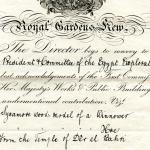 Royal Gardens Kew.
The Director begs to convey to
President & Committee of the Egypt Explorat
best acknowledgments of the First Commis
Her Majesty's Works & Public Building
undermentioned contribution. Viz.
Sycamore wood: model of a Winnower
Hoe
from the Temple of Der el Bahri